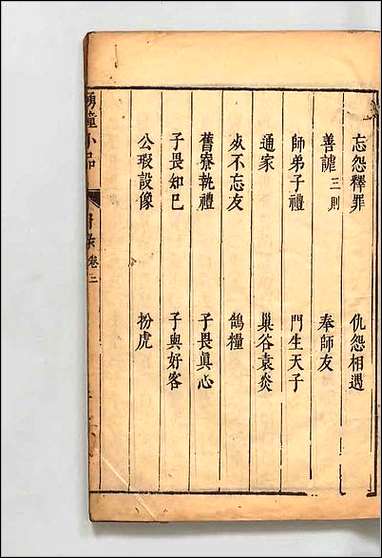 忘怨釋罪　仇怨相遇
善謔三則　奉師友
師弟子禮　門生天子
通家　巢谷袁炎
必不忘友　鵠糧
舊寮執禮　子畏眞心
子畏知己　子與好客
公瑕設像　扮虎
湧幢小品　目錄　卷三